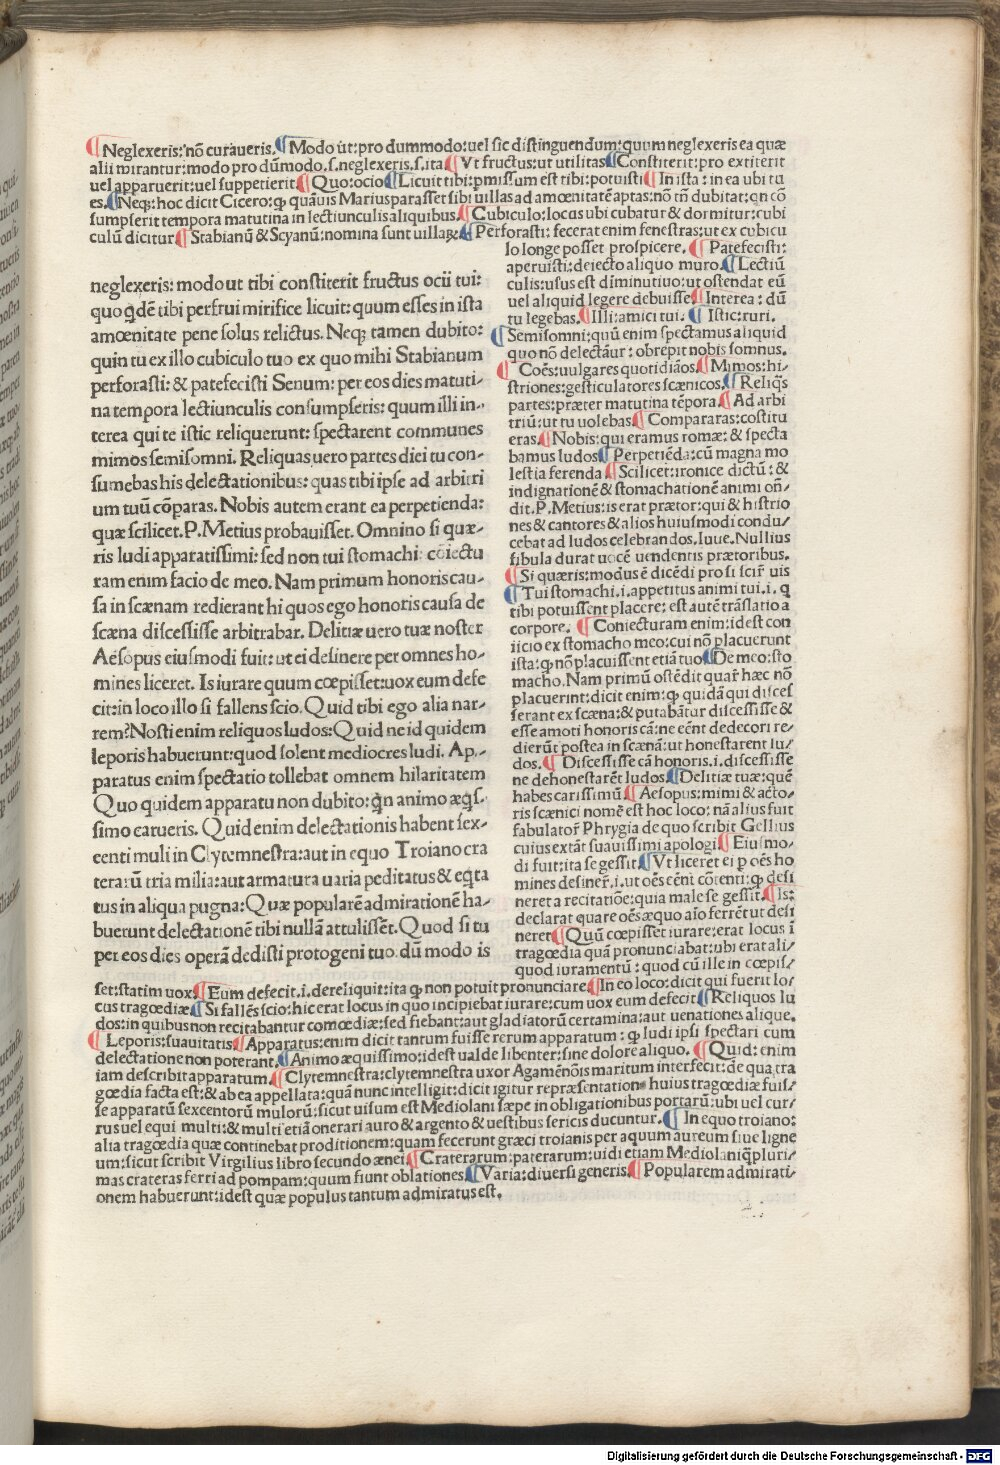 ¶ Neglexeris: nõ curaueris. ¶ Modo ut: pro dummodo: uel sic distinguendum: quum neglexeris ea quæ
alii mirantur: modo pro dũmodo. s. neglexeris. s. ita ¶ Vt fructus: ut utilitas ¶ Constiterit: pro extiterit
uel apparuerit: uel suppetierit ¶ Quo: ocio ¶ Licuit tibi: pmissum est tibi: potuisti ¶ In ista: in ea ubi tu
es. ¶ Neqꝫ: hoc dicit Cicero: ꝙ quãuis Marius parasset sibi uillas ad amœnitatẽ aptas: nõ tñ dubitat: qn cõ
sumpserit tempora matutina in lectiunculis aliquibus. ¶ Cubiculo: locus ubi cubatur & dormitur: cubi
culũ dicitur ¶ Stabianũ & Scyanũ: nomina sunt uillaꝝ ¶ Perforasti: fecerat enim fenestras: ut ex cubicu
neglexeris: modo ut tibi constiterit fructus ocii tui:
quo qdẽ tibi perfrui mirifice licuit: quum esses in ista
amœnitate pene solus relictus. Neqꝫ tamen dubito:
quin tu ex illo cubiculo tuo ex quo mihi Stabianum
perforasti: & patefecisti Senum: per eos dies matuti-
na tempora lectiunculis consumpseris: quum illi in-
terea qui te istic reliquerunt: spectarent communes
mimos semisomni. Reliquas uero partes diei tu con-
sumebas his delectationibus: quas tibi ipse ad arbitri
um tuũ cõparas. Nobis autem erant ea perpetienda:
quæ scilicet. P. Metius probauisset. Omnino si quæ-
ris ludi apparatissimi: sed non tui stomachi: coiectu
ram enim facio de meo. Nam primum honoris cau-
sa in scænam redierant hi quos ego honoris causa de
scæna discessisse arbitrabar. Delitiæ uero tuæ noster
Aesopus eiusmodi fuit: ut ei desinere per omnes ho-
mines liceret. Is iurare quum cœpisset: uox eum defe
cit: in loco illo si fallens scio. Quid tibi ego alia nar-
rem? Nosti enim reliquos ludos: Quid ne id quidem
leporis habuerunt: quod solent mediocres ludi. Ap-
paratus enim spectatio tollebat omnem hilaritatem
Quo quidem apparatu non dubito: qn animo æqs-
simo carueris. Quid enim delectationis habent sex-
centi muli in Clytemnestra: aut in equo Troiano cra
terarũ tria milia: aut armatura uaria peditatus & eqta
tus in aliqua pugna: Quæ popularẽ admirationẽ ha-
buerunt delectationẽ tibi nullã attulissẽt. Quod si tu
per eos dies operã dedisti protogeni tuo. dũ modo is
lo longe posset prospicere. ¶ Patefecisti:
aperuisti: deiecto aliquo muro ¶ Lectiũ
culis: usus est diminutiuo: ut ostendat eũ
uel aliquid legere debuisse ¶ Interea: dũ
tu legebas. ¶ Illi: amici tui. ¶ Istic: ruri.
¶ Semisomni: quũ enim spectamus aliquid
quo nõ delectãur: obrepit nobis somnus.
¶ Coẽs: uulgares quotidiãos. ¶ Mimos: hi-
striones: gesticulatores scænicos. ¶ Reliqs
partes: præter matutina tẽpora. ¶ Ad arbi
triũ: ut tu uolebas. ¶ Compararas: costitu
eras. ¶ Nobis: qui eramus romæ: & specta
bamus ludos ¶ Perperiẽda: cũ magna mo
lestia ferenda ¶ Scilicet: ironice dictũ: &
indignationẽ & stomachationẽ animi oñ-
dit. P. Metius: is erat prætor: qui & histrio
nes & cantores & alios huiusmodi condu-
cebat ad ludos celebrandos. Iuue. Nullius
fibula durat uocẽ uendentis prætoribus.
¶ Si quæris: modus ẽ dicẽdi pro si scir̃ uis
¶ Tui stomachi. i. appetitus animi tui. i. q
tibi potuissent placere: est autẽ trãslatio a
corpore. ¶ Coniecturam enim: idest con
iicio ex stomacho meo: cui nõ placuerunt
ista: ꝙ nõ placuissent etiã tuo ¶ De meo: sto
macho. Nam primũ ostẽdit quar̃ hæc nõ
placuerint: dicit enim: ꝙ quidã qui disces
serant ex scæna: & putabãtur discessisse &
esse amoti honoris cã: ne eẽnt dedecori re-
dierũt postea in scænã: ut honestarent lu-
dos. ¶ Discessisse cã honoris. i. discessisse
ne dehonestarẽt ludos ¶ Delitiæ tuæ: quẽ
habes carissimũ ¶ Aesopus: mimi & acto-
ris scænici nomẽ est hoc loco: nã alius fuit
fabulator̃ Phrygia de quo scribit Gellius
cuius extãt suauissimi apologi ¶ Eiusmo-
di fuit: ita se gessit ¶ Vt liceret ei p oẽs ho
mines desiner̃. i. ut oẽs eẽnt cõtenti: ꝙ desi
neret a recitatiõe: quia male se gessit. ¶ Is:
declarat quare oẽs æquo aĩo ferrẽt ut desi
neret ¶ Quũ cœpisset iurare: erat locus ĩ
tragœdia quã pronunciabat: ubi erat ali-
quod iuramentũ: quod cũ ille in cœpis-
set: statim uox. ¶ Eum defecit. i. dereliquit: ita ꝙ non potuit pronunciare ¶ In eo loco: dicit qui fuerit lo-
cus tragœdiæ ¶ Si fallẽs scio: hic erat locus in quo incipiebat iurare: cum uox eum defecit ¶ Reliquos lu
dos: in quibus non recitabantur comœdiæ: sed fiebant: aut gladiatorũ certamina: aut uenationes alique.
¶ Leporis: suauitatis ¶ Apparatus: enim dicit tantum fuisse rerum apparatum: ꝙ ludi ipsi spectari cum
delectatione non poterant. ¶ Animo æquissimo: idest ualde libenter: sine dolore aliquo. ¶ Quid: enim
iam describit apparatum. ¶ Clytemnestra: clytemnestra uxor Agamẽnõis maritum interfecit: de qua tra
gœdia facta est: & ab ea appellata: quã nunc intelligit: dicit igitur repræsentationẽ huius tragœdiæ fuis-
se apparatũ sexcentorũ mulorũ: sicut uisum est Mediolani sæpe in obligationibus portarũ: ubi uel cur-
rus uel equi multi: & multi etiã onerari auro & argento & uestibus sericis ducuntur. ¶ In equo troiano:
alia tragœdia quæ continebat proditionem: quam fecerunt græci troianis per aquum aureum siue ligne
um: sicut scribit Virgilius libro secundo ænei ¶ Craterarum: paterarum: uidi etiam Mediolani qplurí-
mas crateras ferri ad pompam: quum fiunt oblationes ¶ Varia: diuersi generis. ¶ Popularem admirati-
onem habuerunt: idest quæ populus tantum admiratus est.
Digitalisierung gefördert durch die Deutsche Forschungsgemeinschaft - DFG